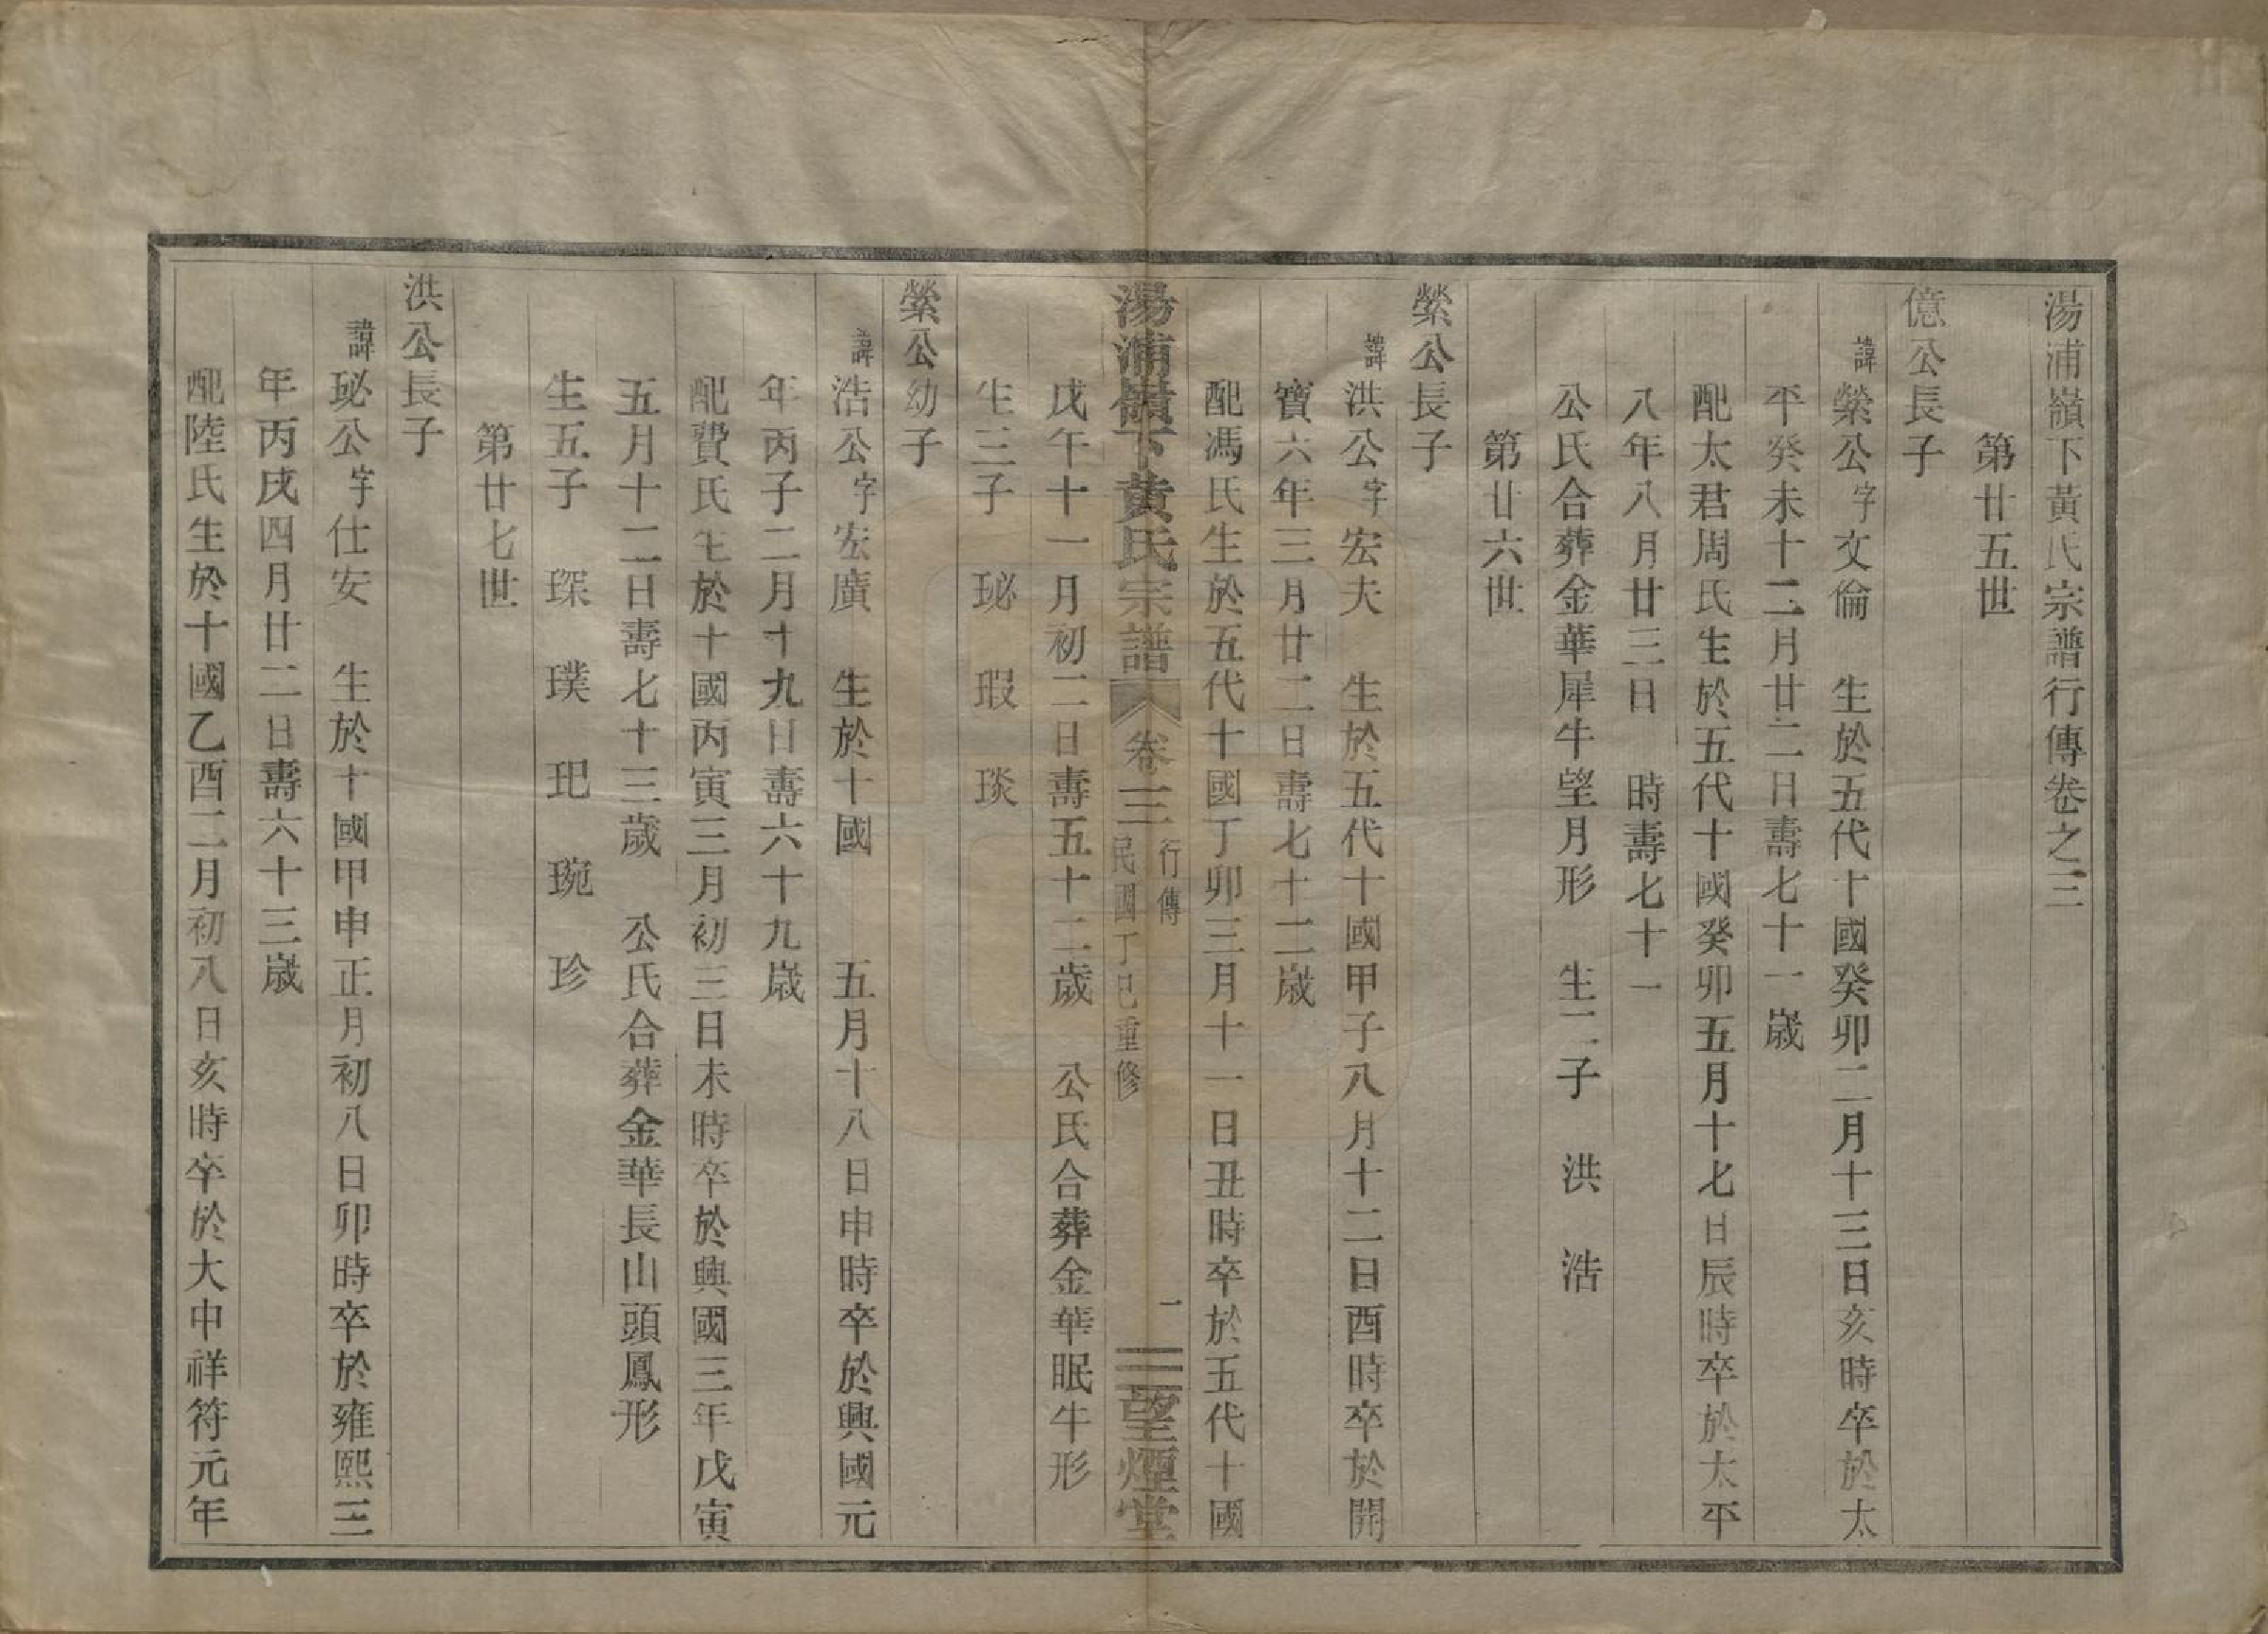 湯浦嶺下黃氏宗譜行傳卷之三
第廿五世
億公長子
諱縈公字文倫 生於五代十國癸卯二月十三日亥時卒於太
平癸未十二月廿二日壽七十一歲
配太君周氏生於五代十國癸卯五月十七日辰時卒於太平
八年八月廿三日 時壽七十一
公氏合葬金華犀牛望月形 生二子 洪 浩
第廿六世
縈公長子
諱洪公字宏夫 生於五代十國甲子八月十二日酉時卒於開
寶六年三月廿二日壽七十二歲
配馮氏生於五代十國丁卯三月十一日丑時卒於五代十國
湯浦嶺下黃氏宗譜 卷三 行傳 民國丁巳重修 一 望煙堂
戊午十一月初二日壽五十二歲 公氏合葬金華眠牛形
生三子 珌 瑕 琰
縈公幼子
諱浩公字宏廣 生於十國 五月十八日申時卒於興國元
年丙子二月十九日壽六十九歲
配費氏生於十國丙寅三月初三日未時卒於興國三年戊寅
五月十二日壽七十三歲 公氏合葬金華長山頭鳳形
生五子 琛 璞 玘 琬 珍
第廿七世
洪公長子
諱珌公字仕安 生於十國甲申正月初八日卯時卒於雍熙三
年丙戌四月廿二日壽六十三歲
配陸氏生於十國乙酉二月初八日亥時卒於大中祥符元年